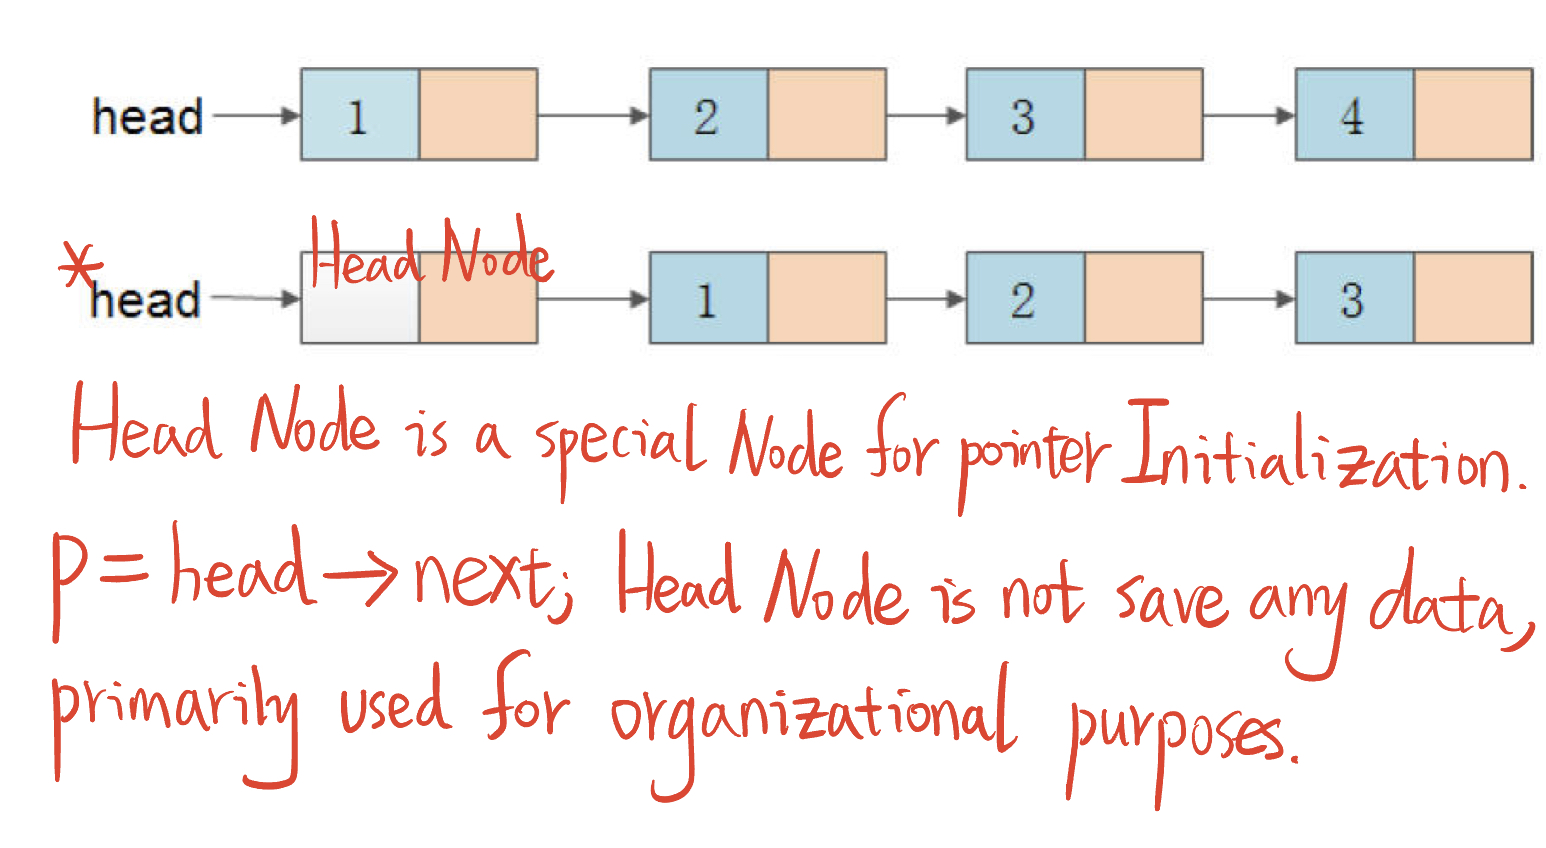 head 1 2 3 4
Head Node
*head 1 2 3
Head Node is a special Node for pointer Initialization.
p = head → next; Head Node is not save any data,
primarily used for organizational purposes.